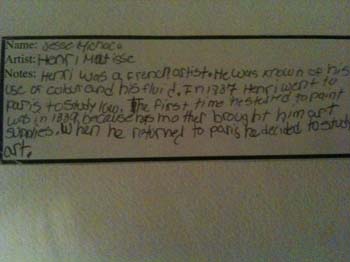 Name: Jesse Michaca
Artist: Henri Matisse
Notes: Henri was a french artist. He was known of his
use of colour and his fluid. In 1887 Henri went to
paris to study law. The first time he started to paint
was in 1889, because his mother brought him art
supplies. When he returned to paris he decided to study
art.